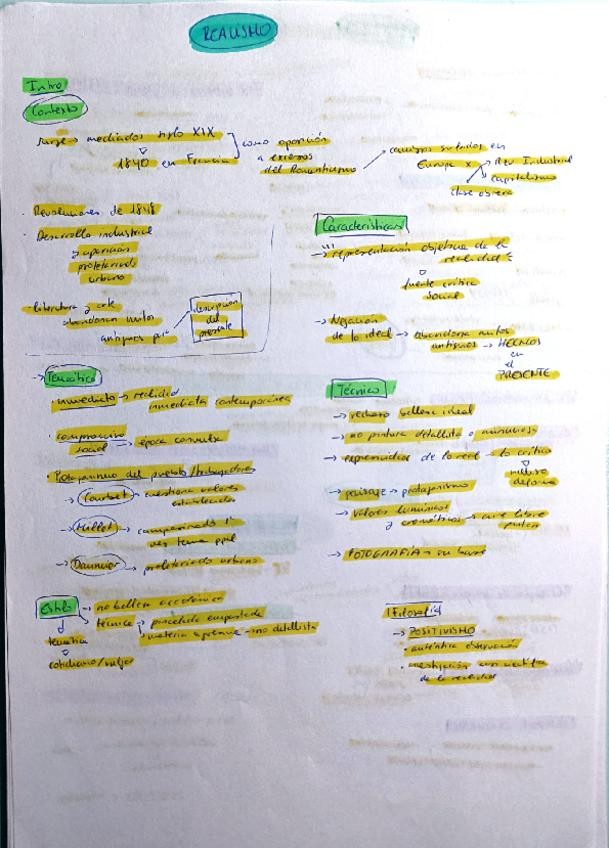 REALISMO
Intro
Contexto
surge → mediados siglo XIX
1840 en Francia
como oposición
a excesos
del Romanticismo
cambios sufridos en
Europa x
Rev Industrial
Capitalismo
clase obrera
· Revoluciones de 1848
· Desarrollo industrial
→ aparición
proletariado
urbano
· literatura y arte
abandonan mitos
antiguos para
descripción
del
presente
Características
→ representación objetiva de la
realidad
fuerte crítica
social
→ Negación
de lo ideal → abandona mitos
antiguos → HECHOS
en
el
PRESENTE
→ Temática
· inmediato → realidad
inmediata contemporánea
· compromiso
social → época convulsa
· Protagonismo del pueblo/trabajadores
→ Courbet - cuestiona valores
establecidos
→ Millet - campesinado 1ª
vez tema ppal
→ Daumier → proletariado urbano
Técnica
→ rechazo belleza ideal
→ no pintura detallista o minuciosa
→ reproducción de lo real → lo crítico
incluso
deforme
→ paisaje → protagonismo
→ valores lumínicos
y cromáticos → aire libre
pintan
→ FOTOGRAFÍA = su base
Estilo → no belleza académica
técnica → pincelada empastada
materia a presión → no detallista
temática
cotidiano/vulgar
Filosofía
→ POSITIVISMO
· auténtica observación
· investigación
de la realidad